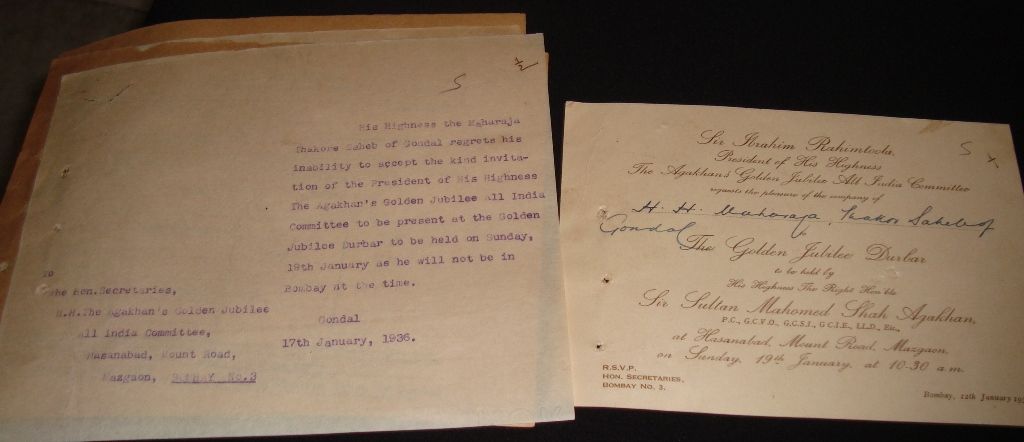 S
½
His Highness the Maharaja
Thakore Saheb of Gondal regrets his
inability to accept the kind invita-
tion of the President of His Highness
The Agakhan's Golden Jubilee All India
Committee to be present at the Golden
Jubilee Durbar to be held on Sunday,
19th January as he will not be in
Bombay at the time.
Gondal
17th January, 1936.
To
The Hon.Secretaries,
H.H.The Agakhan's Golden Jubilee
All India Committee,
Hasanabad, Mount Road,
Mazgaon, BOMBAY No.3
S
Sir Ibrahim Rahimtoola,
President of His Highness
The Agakhan's Golden Jubilee All India Committee
requests the pleasure of the company of
H. H. Maharaja Thakor Saheb of
Gondal
to
The Golden Jubilee Durbar
to be held by
His Highness The Right Hon'ble
Sir Sultan Mahomed Shah Agakhan,
P.C., G.C.V.O., G.C.S.I., G.C.I.E., LL.D., Etc.,
at Hasanabad, Mount Road, Mazgaon.
on Sunday, 19th January, at 10-30 a.m.
R.S.V.P.
HON. SECRETARIES,
BOMBAY No. 3.
Bombay, 12th January 193